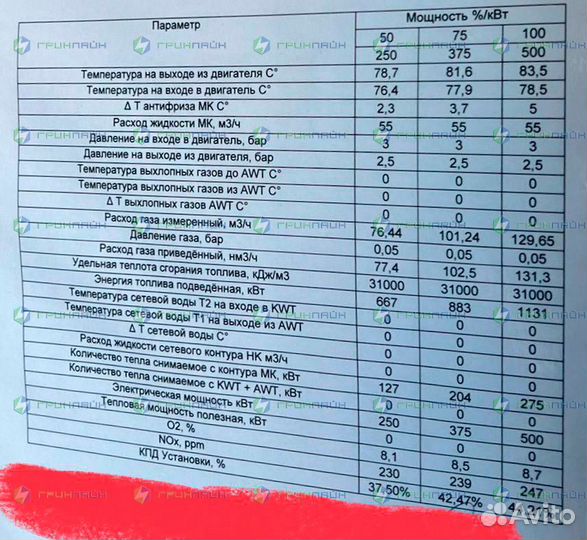 Параметр Мощность %/кВт
50 75 100
250 375 500
Температура на выходе из двигателя С° 78,7 81,6 83,5
Температура на входе в двигатель С° 76,4 77,9 78,5
Δ Т антифриза МК С° 2,3 3,7 5
Расход жидкости МК, м3/ч 55 55 55
Давление на входе в двигатель, бар 3 3 3
Давление на выходе из двигателя, бар 2,5 2,5 2,5
Температура выхлопных газов до AWT С° 0 0 0
Температура выхлопных газов из AWT С° 0 0 0
Δ Т выхлопных газов AWT С° 0 0 0
Расход газа измеренный, м3/ч 76,44 101,24 129,65
Давление газа, бар 0,05 0,05 0,05
Расход газа приведённый, нм3/ч 77,4 102,5 131,3
Удельная теплота сгорания топлива, кДж/м3 31000 31000 31000
Энергия топлива подведённая, кВт 667 883 1131
Температура сетевой воды Т2 на входе в KWT 0 0 0
Температура сетевой воды Т1 на выходе из AWT 0 0 0
Δ Т сетевой воды С° 0 0 0
Расход жидкости сетевого контура НК м3/ч 0 0 0
Количество тепла снимаемое с контура МК, кВт 127 204 275
Количество тепла снимаемое с KWT + AWT, кВт 0 0 0
Электрическая мощность кВт 250 375 500
Тепловая мощность полезная, кВт
O2, % 8,1 8,5 8,7
NOx, ppm 230 239 247
КПД Установки, % 37,50% 42,47%
ГРИНЛАЙН
Avito